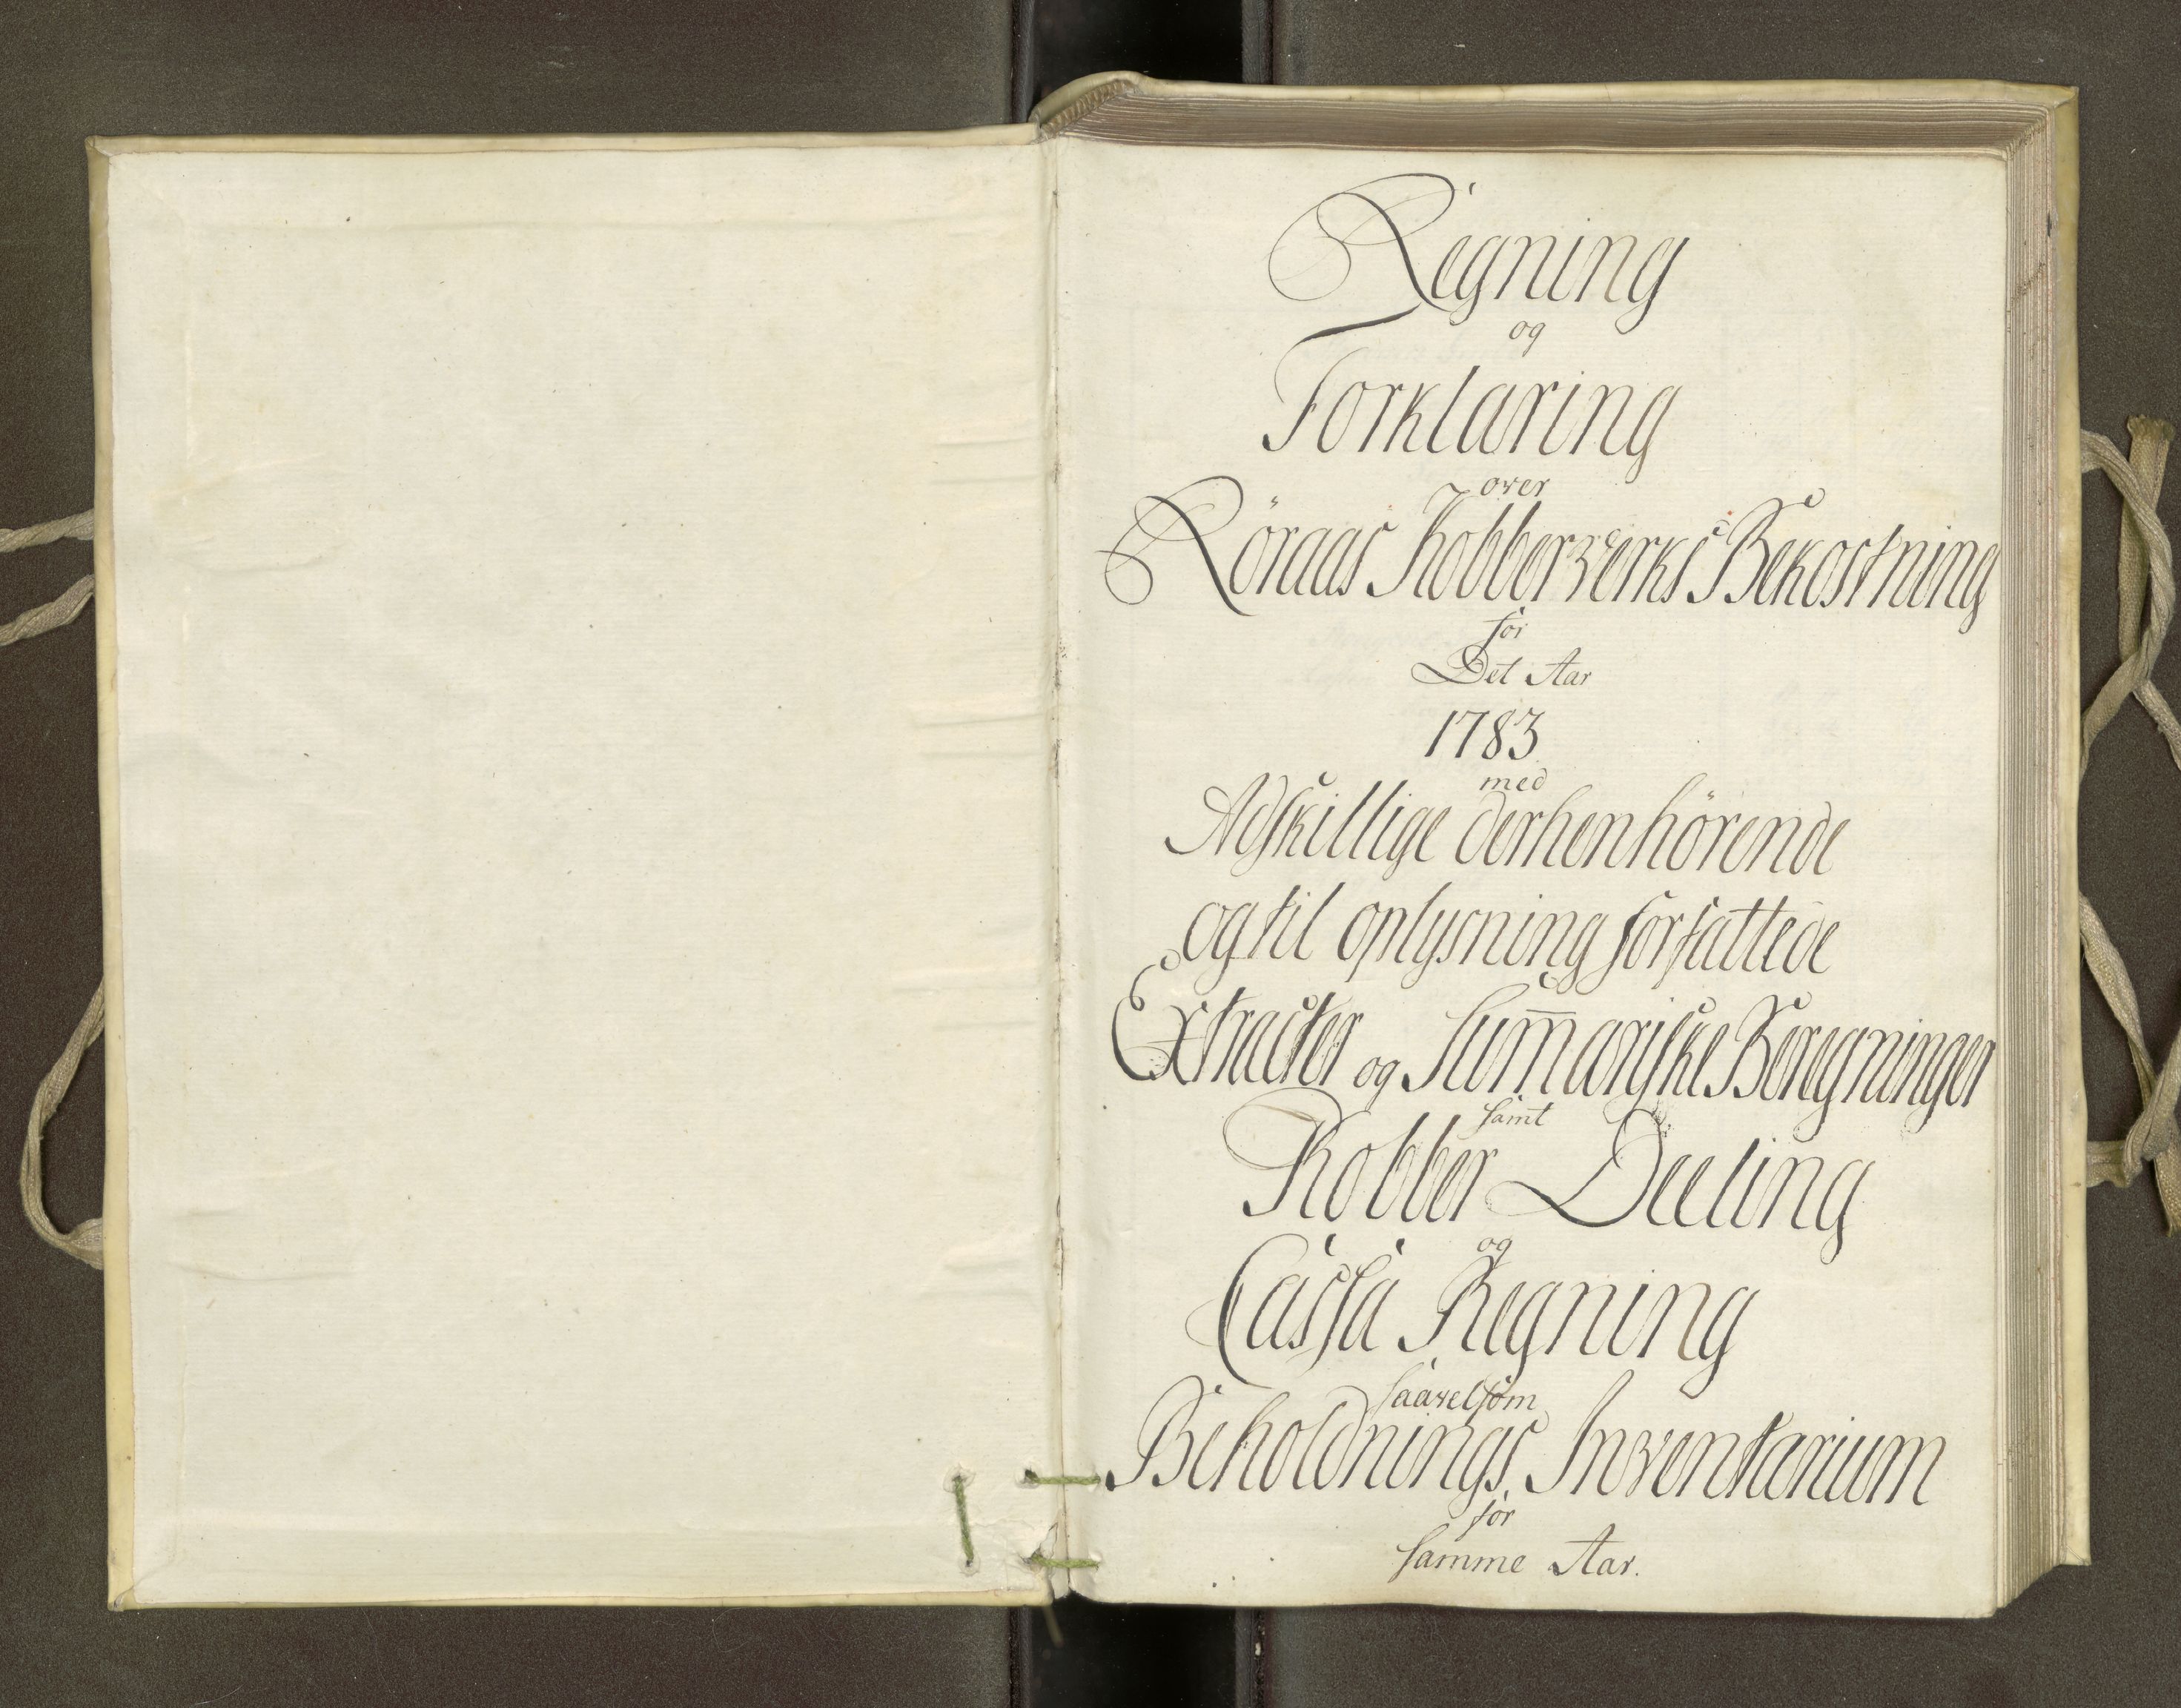 Regning
og
Forklaring
over
Röraas Kobberverks Bekostning
for
Det Aar
1783
med
Adskillige derhenhörende
og til oplysning forfattede
Extracter og Sum̅ariske Beregninger
samt
Kobber Deeling
og
Cassa Regning
saavelsom
Beholdnings Inventarium
for
samme Aar.